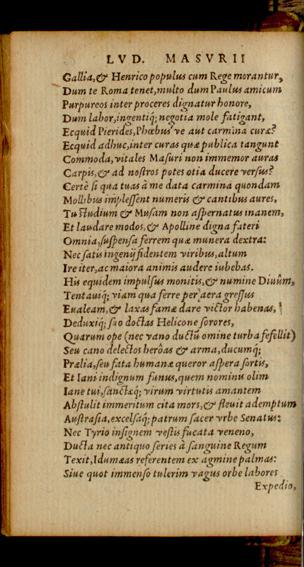 LVD. MASVRII
Gallia, & Henrico populus cum Rege morantur,
Dum te Roma tenet, multo dum Paulus amicum
Purpureos inter proceres dignatur honore,
Dum labor, ingentiq; negotia mole fatigant,
Ecquid Pierides, Phœbus ve aut carmina curæ?
Ecquid adhuc, inter curas quæ publica tangunt
Commoda, vitales Masuri non immemor auras
Carpis, & ad nostros potes otia ducere versus?
Certè si qua tuas à me data carmina quondam
Mollibus implessent numeris & cantibus aures,
Tu studium & Musam non aspernatus inanem,
Et laudare modos, & Apolline digna fateri
Omnia, suspensa ferrem quæ munera dextra:
Nec satis ingenij fidentem viribus, altum
Ire iter, ac maiora animis audere iubebas.
His equidem impulsus monitis, & numine Diuûm,
Tentauiq; viam qua ferre per aera gressus
Eualeam, & laxas famæ dare victor habenas,
Deduxiq; suo doctas Helicone sorores,
Quarum ope (nec vano ductū omine turba fefellit)
Seu cano delectos herôas & arma, ducumq;
Prælia, seu fata humanæ queror aspera sortis,
Et Iani indignum funus, quem nominu olim
Iane tui, sanctæq; virum virtutis amantem
Abstulit immeritum cita mors, & fleuit ademptum
Austrasia, excelsaq; patrum sacer vrbe Senatus:
Nec Tyrio insignem vestis fucata veneno,
Ducta nec antiquo series à sanguine Regum
Texit, Idumæas referentem ex agmine palmas:
Siue quot immenso tulerim vagus orbe labores
Expedio,